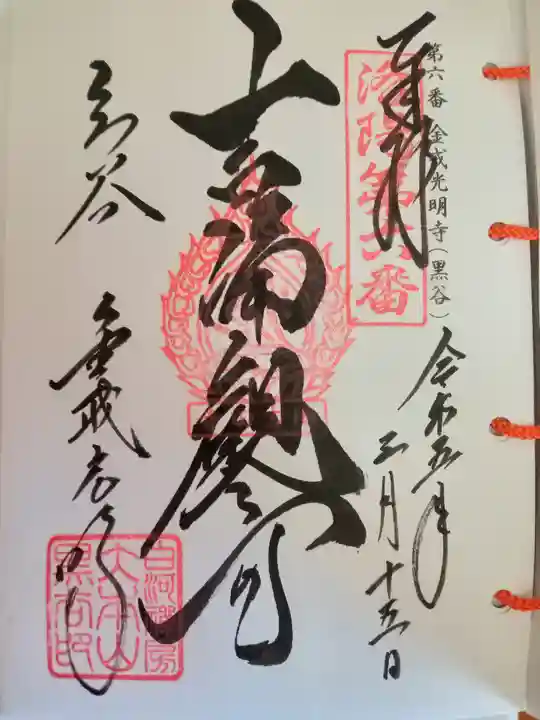 第六番 金戒光明寺(黒谷)
奉拝
洛陽第六番
令和五年
三月十五日
吉備観音
黒谷
金戒光明寺
白河禅房
大本山
黒谷印